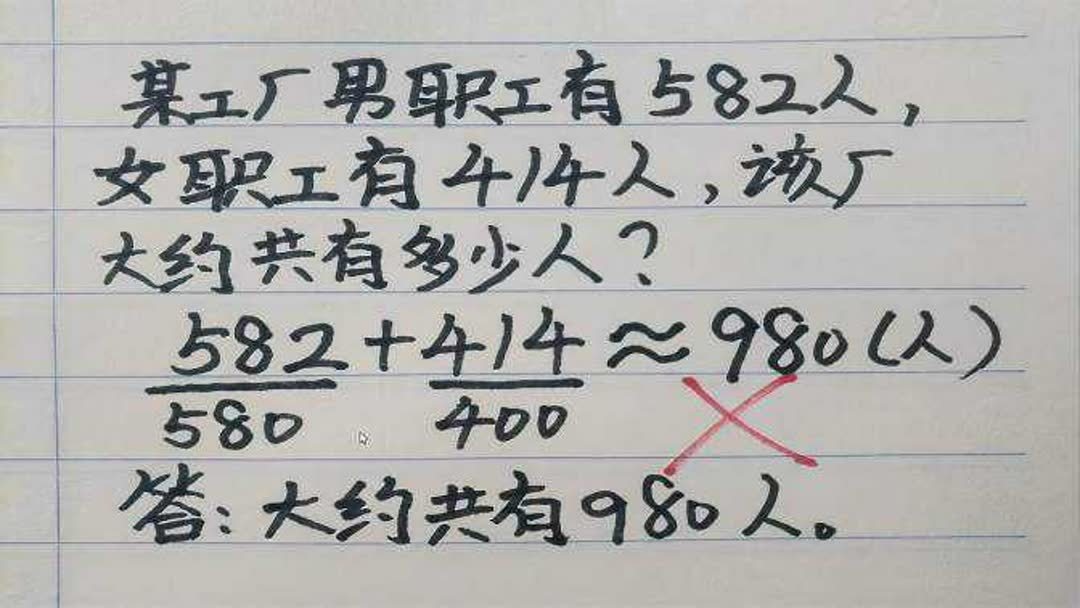 某工厂男职工有582人,
女职工有414人,该厂
大约共有多少人?
582+414≈980(人)
580 400
答:大约共有980人。